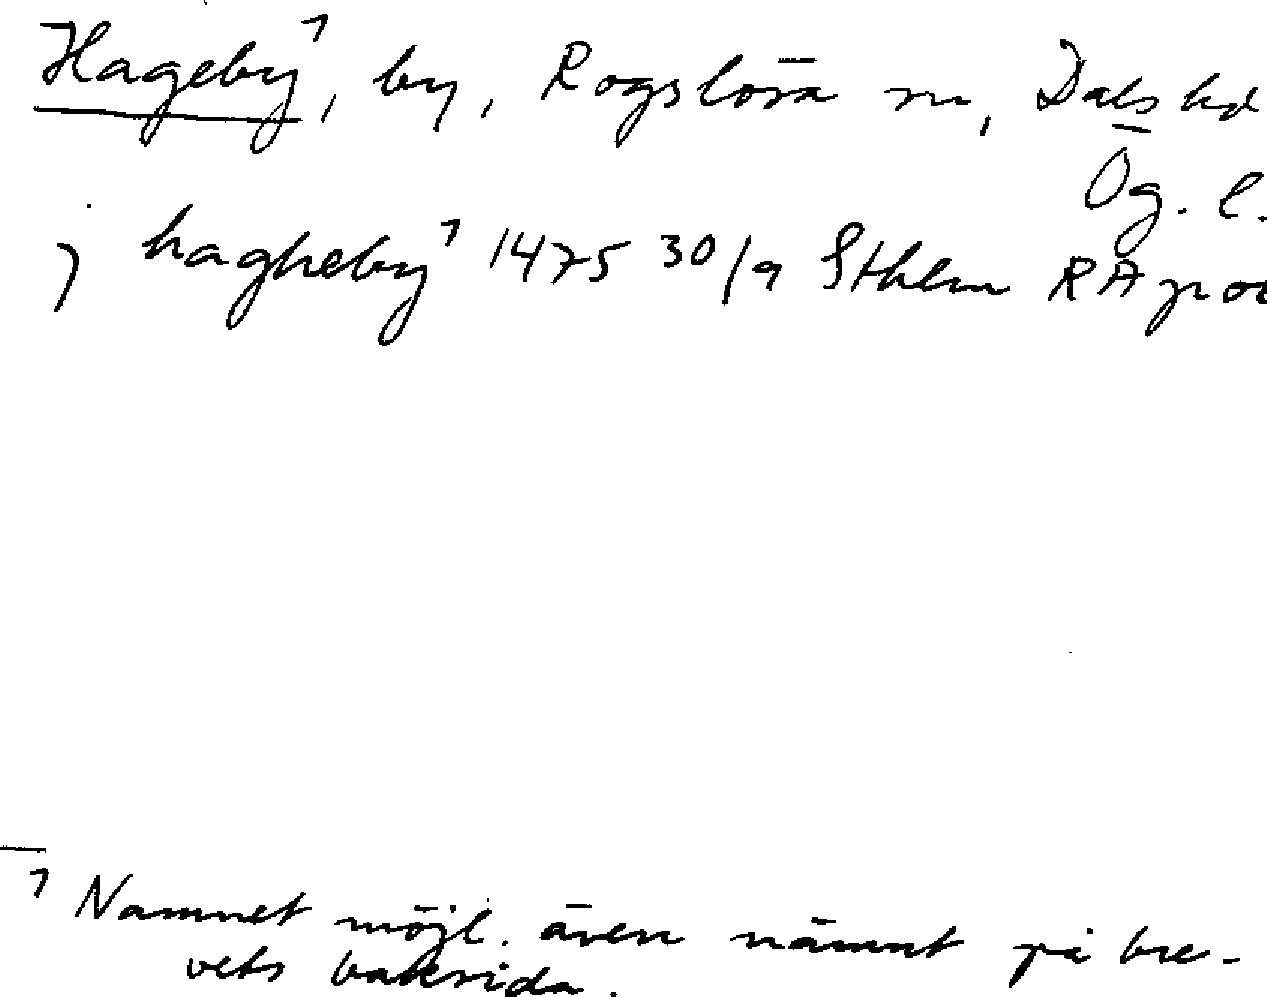 Hageby⁷, by, Rogslösa sn, Dals hd
Ög. l.
j hagheby⁷ 1475 30/9 Sthlm RA
⁷ Namnet möjl. även nämnt på bre-
vets baksida.